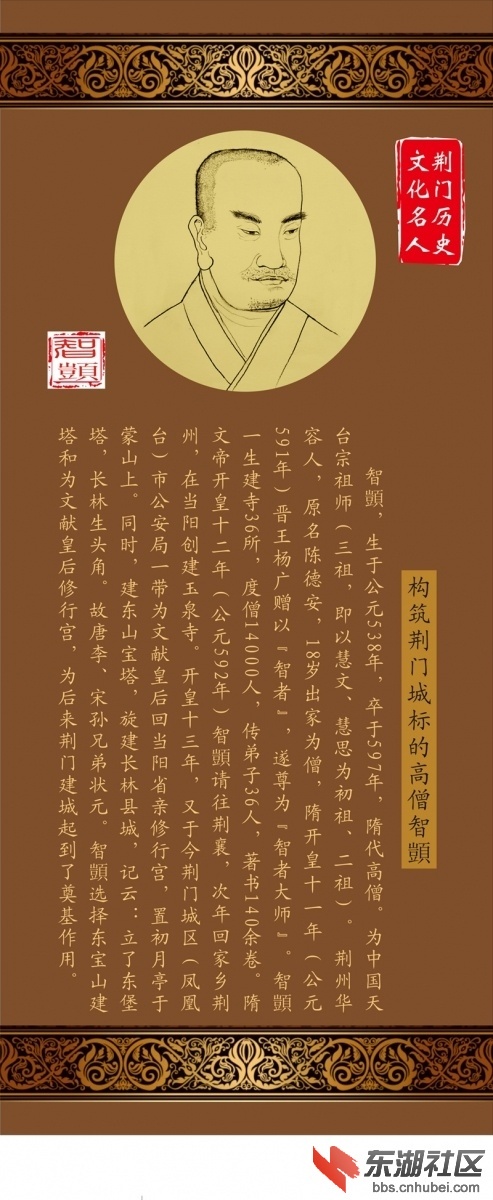 荆门历史
文化名人
智顗
构筑荆门城标的高僧智顗
智顗，生于公元538年，卒于597年，隋代高僧。为中国天
台宗祖师（三祖，即以慧文、慧思为初祖、二祖）。荆州华
容人，原名陈德安，18岁出家为僧，隋开皇十一年（公元
591年）晋王杨广赠以『智者』，遂尊为『智者大师』。智顗
一生建寺36所，度僧14000人，传弟子36人，著书140余卷。隋
文帝开皇十二年（公元592年）智顗请往荆襄，次年回家乡荆
州，在当阳创建玉泉寺。开皇十三年，又于今荆门城区（凤凰
台）市公安局一带为文献皇后回当阳省亲修行宫，置初月亭于
蒙山上。同时，建东山宝塔，旋建长林县城，记云：立了东堡
塔，长林生头角。故唐李、宋孙兄弟状元。智顗选择东宝山建
塔和为文献皇后修行宫，为后来荆门建城起到了奠基作用。
东湖社区
bbs.cnhubei.com